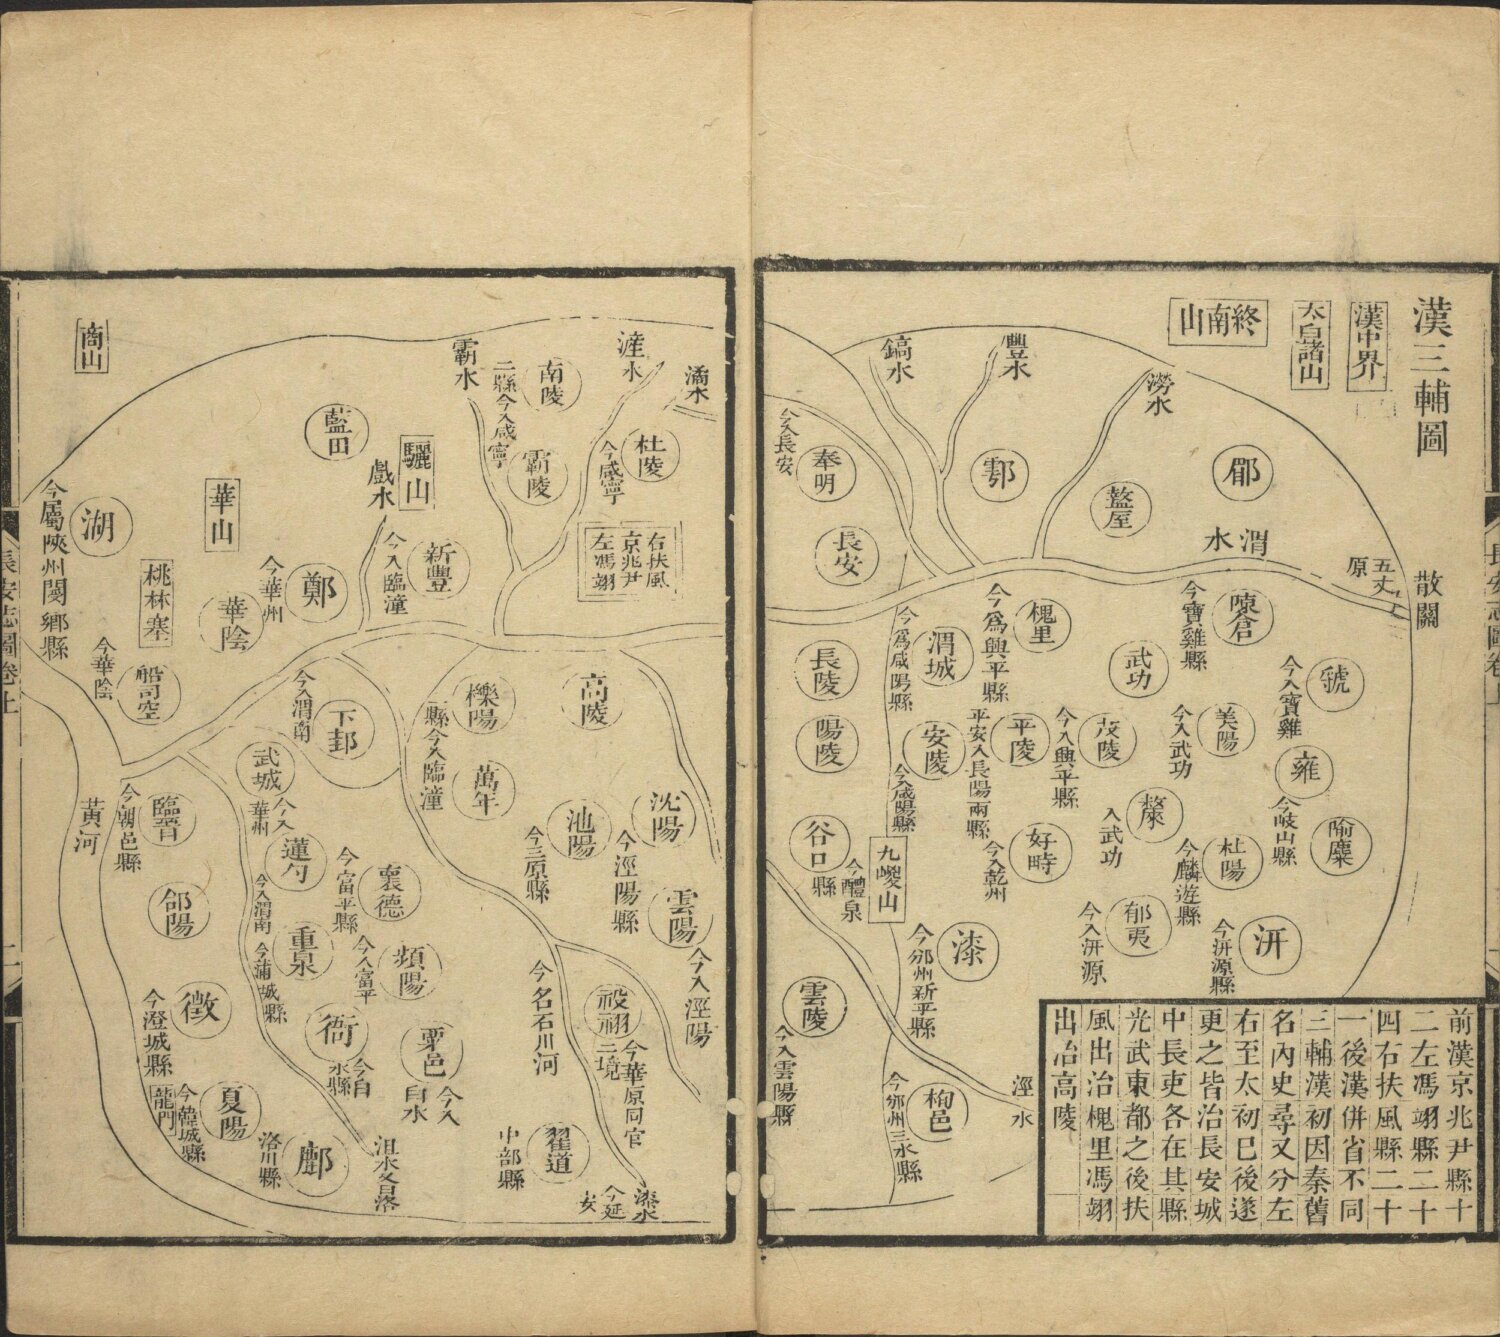 漢三輔圖
漢中界
太白諸山
終南山
散關
五丈原
渭水
澇水
豐水
鎬水
郿
盩厔
鄠
奉明
今入長安
長安
陳倉
今寶雞縣
虢
今入寶雞
雍
今岐山縣
隃麋
美陽
今入武功
武功
杜陽
今麟遊縣
汧
今汧源縣
郁夷
今入汧源
斄
入武功
槐里
今爲興平縣
茂陵
今入興平縣
平陵
平安入長陽兩縣
好畤
今入乾州
渭城
今爲咸陽縣
安陵
今入咸陽縣
長陵
陽陵
谷口
縣
今醴泉
九嵕山
漆
今邠州新平縣
雲陵
今入雲陽縣
栒邑
今邠州三水縣
涇水
前漢京兆尹縣十
二左馮翊縣二十
四右扶風縣二十
一後漢併省不同
三輔漢初因秦舊
名內史尋又分左
右至太初已後遂
更之皆治長安城
中長吏各在其縣
光武東都之後扶
風出治槐里馮翊
出治高陵
長安志圖卷上
潏水
滻水
霸水
南陵
二縣今入咸寧
霸陵
杜陵
今咸寧
右扶風
京兆尹
左馮翊
藍田
驪山
戲水
新豐
今入臨潼
商山
華山
鄭
今華州
湖
今屬陝州閿鄉縣
桃林塞
華陰
今華陰
船司空
高陵
櫟陽
二縣今入臨潼
萬年
下邽
今入渭南
沈陽
池陽
今三原縣
今涇陽縣
雲陽
今入涇陽
武城
今入華州
蓮勺
今入渭南
臨晉
今朝邑縣
黃河
郃陽
褱德
今富平縣
重泉
今蒲城縣
頻陽
今入富平
徵
今澄城縣
衙
今白水縣
粟邑
今入白水
今名石川河
祋祤
今華原同官二境
夏陽
今韓城縣
龍門
鄜
洛川縣
沮水名洛
翟道
中部縣
漆水
今延安
長安志圖卷上
二